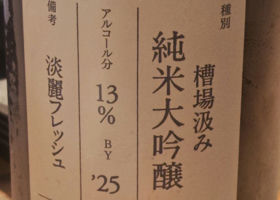 種別
槽場汲み
純米大吟醸
アルコール分
13%
BY
'25
備考
淡麗フレッシュ